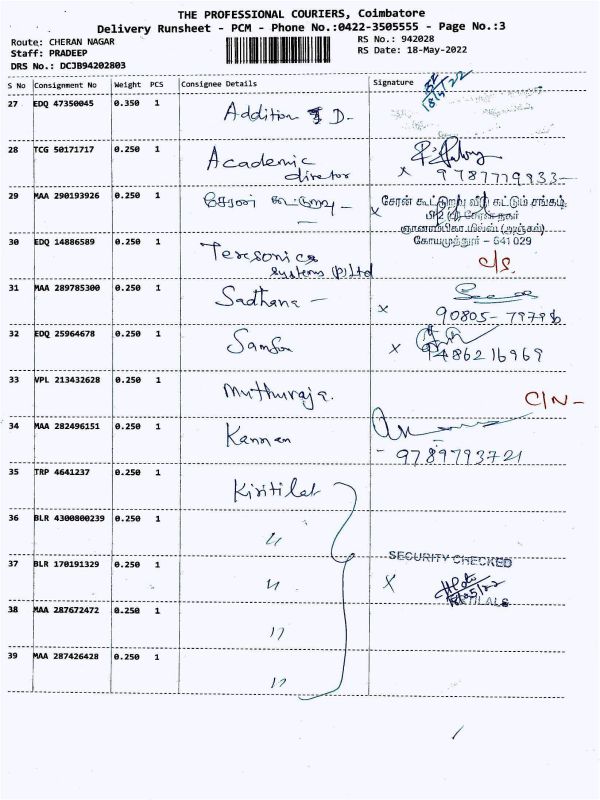 THE PROFESSIONAL COURIERS, Coimbatore
Delivery Runsheet - PCM - Phone No.:0422-3505555 - Page No.:3
Route: CHERAN NAGAR
RS No.: 942028
Staff: PRADEEP
RS Date: 18-May-2022
DRS No.: DCJB94202803
S No Consignment No Weight PCS Consignee Details Signature
18/5/22
27 EDQ 47350045 0.350 1 Addition D-
28 TCG 50171717 0.250 1 Academic
director
x 9787779833-
29 MAA 290193926 0.250 1 சேரன் கூட்டுறவு -
x சேரன் கூட்டுறவு வீடு கட்டும் சங்கம்,
சேரன் நகர்
(அஞ்சல்)
கோயமுத்தூர் - 641 029
30 EDQ 14886589 0.250 1 Terasonics
systems (P) Ltd
C/S.
31 MAA 289785300 0.250 1 Sadhana -
x 90805-79796
32 EDQ 25964678 0.250 1 Samson
x 9486216969
33 VPL 213432628 0.250 1 Muthuraja.
C/N-
34 MAA 282496151 0.250 1 Kannan
- 9789793721
35 TRP 4641237 0.250 1 Kiritilal
36 BLR 4300800239 0.250 1 "
SECURITY CHECKED
37 BLR 170191329 0.250 1 "
x
38 MAA 287672472 0.250 1 "
39 MAA 287426428 0.250 1 "